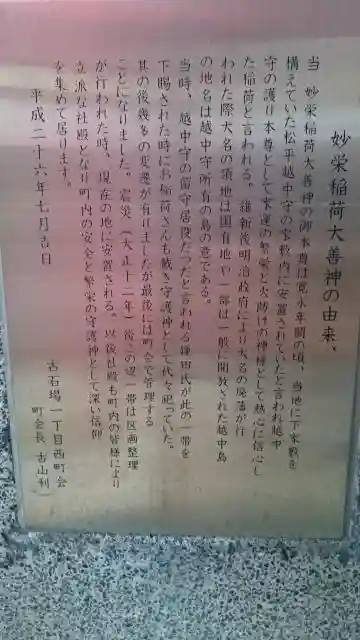 妙栄稲荷大善神の由来、
当 妙栄稲荷大善神の御本尊は寛永年間の頃、当地に下家敷を
構えていた松平越中守の家敷内に安置されていたと言われ越中
守の護り本尊として家運の繁栄と火防の神様として熱心に信心し
た稲荷と言われる。維新後明治政府により大名の廃藩が行
われた際大名の領地は国有地や一部は一般に開放された越中島
の地名は越中守所有の島の意である。
当時、越中守の留守居役だったと言われる鎌田氏が此の一帯を
下賜された時にお稲荷さんも戴き守護神として代々祀っていた。
其の後幾多の変遷が有りましたが最後には町会で管理する
ことになりました。震災(大正十二年)後この辺一帯は区画整理
が行われた時、現在の地に安置される。以後社殿も町内の皆様により
立派な社殿となり町内の安全と繁栄の守護神として深い信仰
を集めて居ります。
平成二十六年七月吉日
古石場一丁目西町会
町会長 古山利一